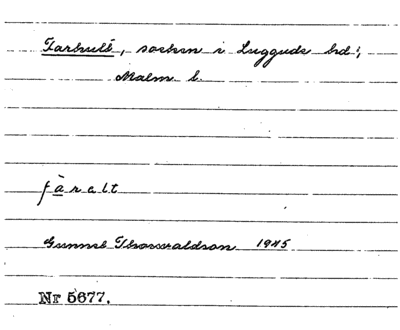 Farhult, socken i Luggude hd;
Malm l.
fàralt
Gunnel Thorwaldson 1945
Nr 5677.